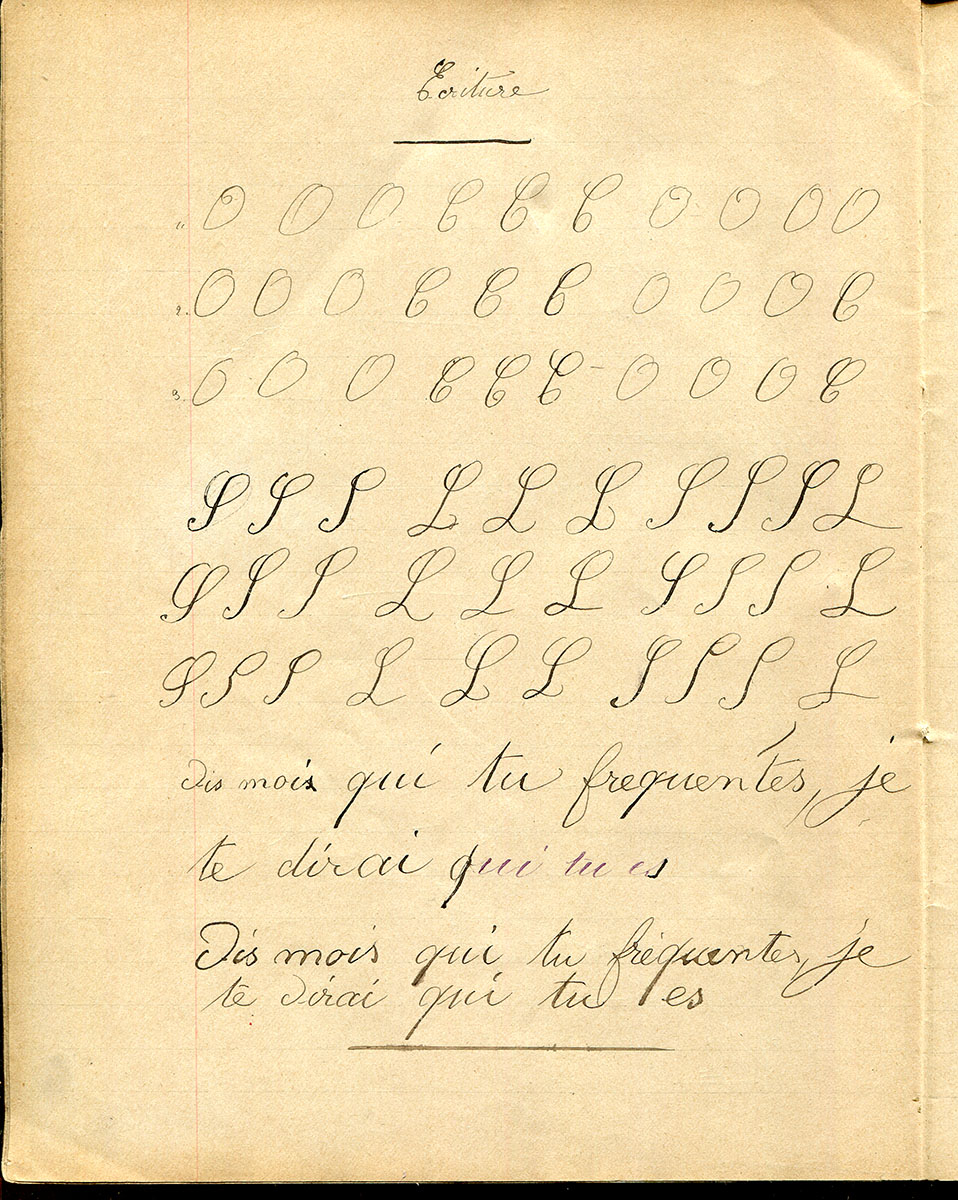 Ecriture
1. O O O C C C O O O O
2. O O O C C C O O O C
3. O O O C C C O O O C
S S S L L L S S S L
S S S L L L S S S L
S S S L L L S S S L
Dis mois qui tu frequentes, je
te dirai qui tu es
Dis mois qui tu fréquentes, je
te dirai qui tu es